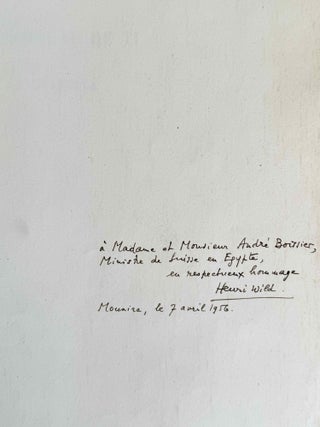 à Madame et Monsieur André Boissier,
Ministre de Suisse en Egypte,
en respectueux hommage
Henri Wild.
Mounira, le 7 avril 1956.